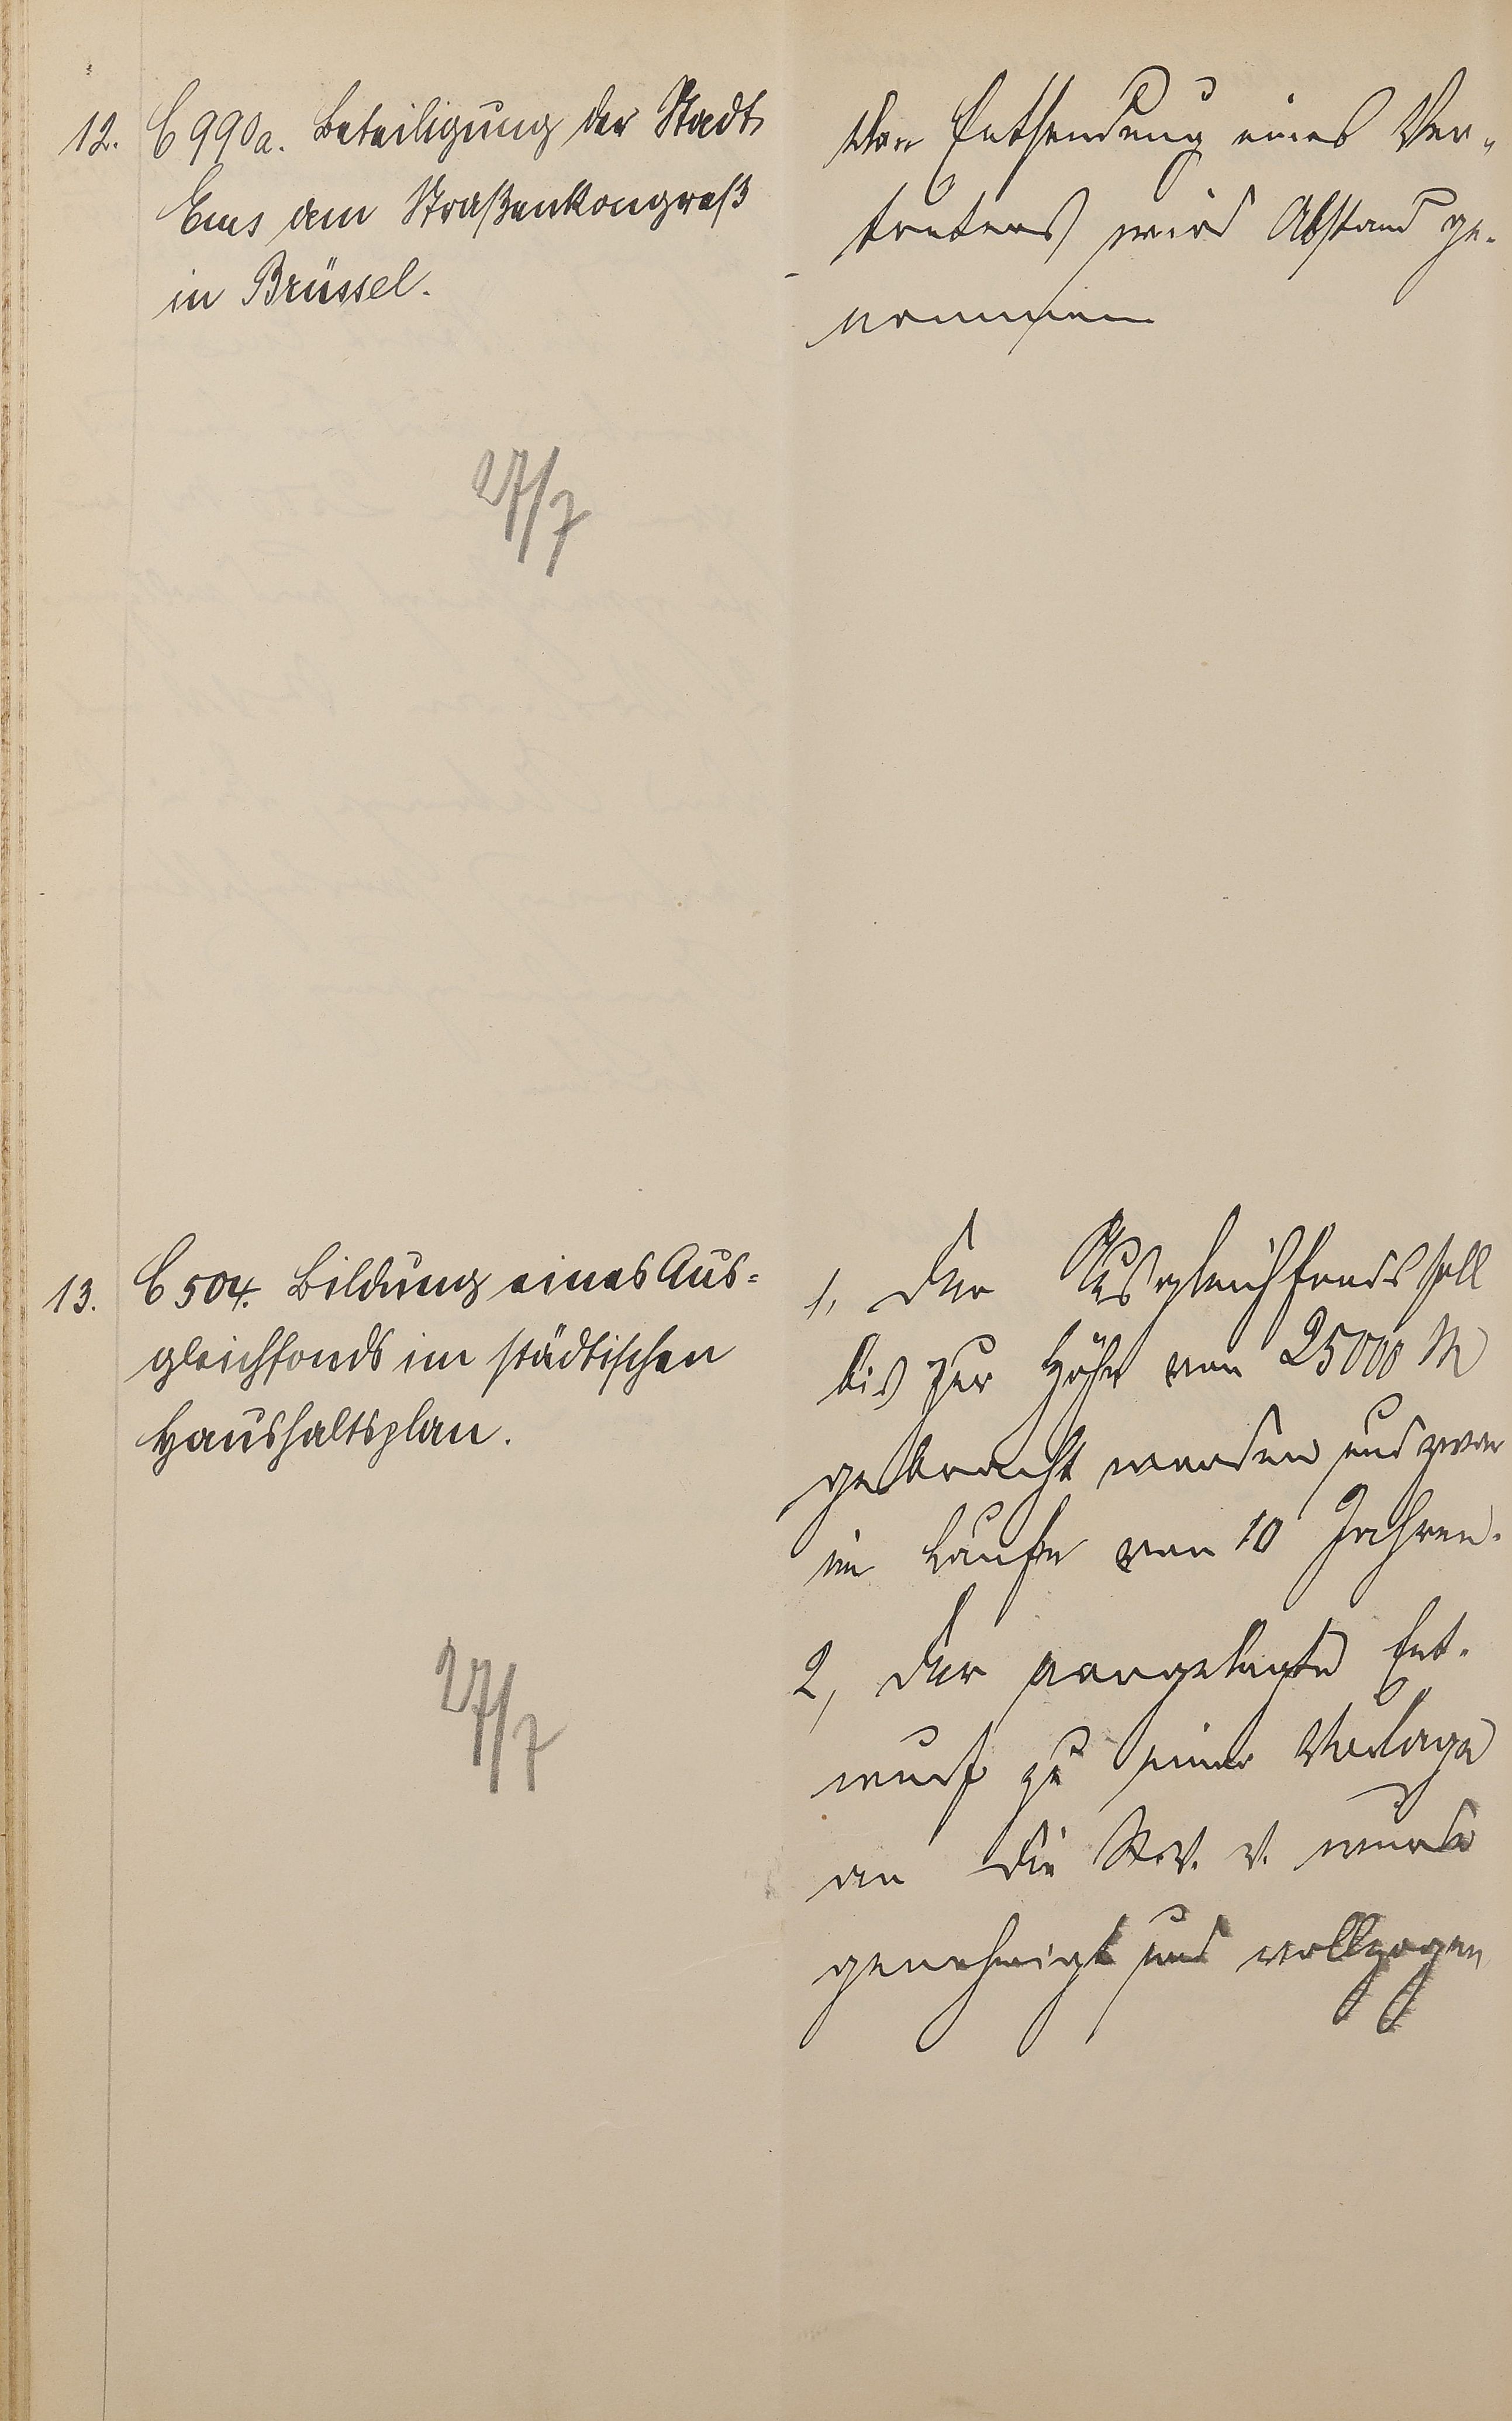 12. C 990a. Beteiligung der Stadt
Ems am Straßenkongreß
in Brüssel.
27/7
Von Entsendung eines Ver-
treters wird Abstand ge-
nommen
13. C 504. Bildung eines Aus=
gleichfonds im städtischen
Haushaltsplan.
27/7
1, Der Ausgleichfonds soll
bis zur Höhe von 25000 M
gebracht werden und zwar
im Laufe von 10 Jahren.
2, Der vorgelegte Ent-
wurf zu einer Vorlage
an die St. V. V. wurde
genehmigt und vollzogen